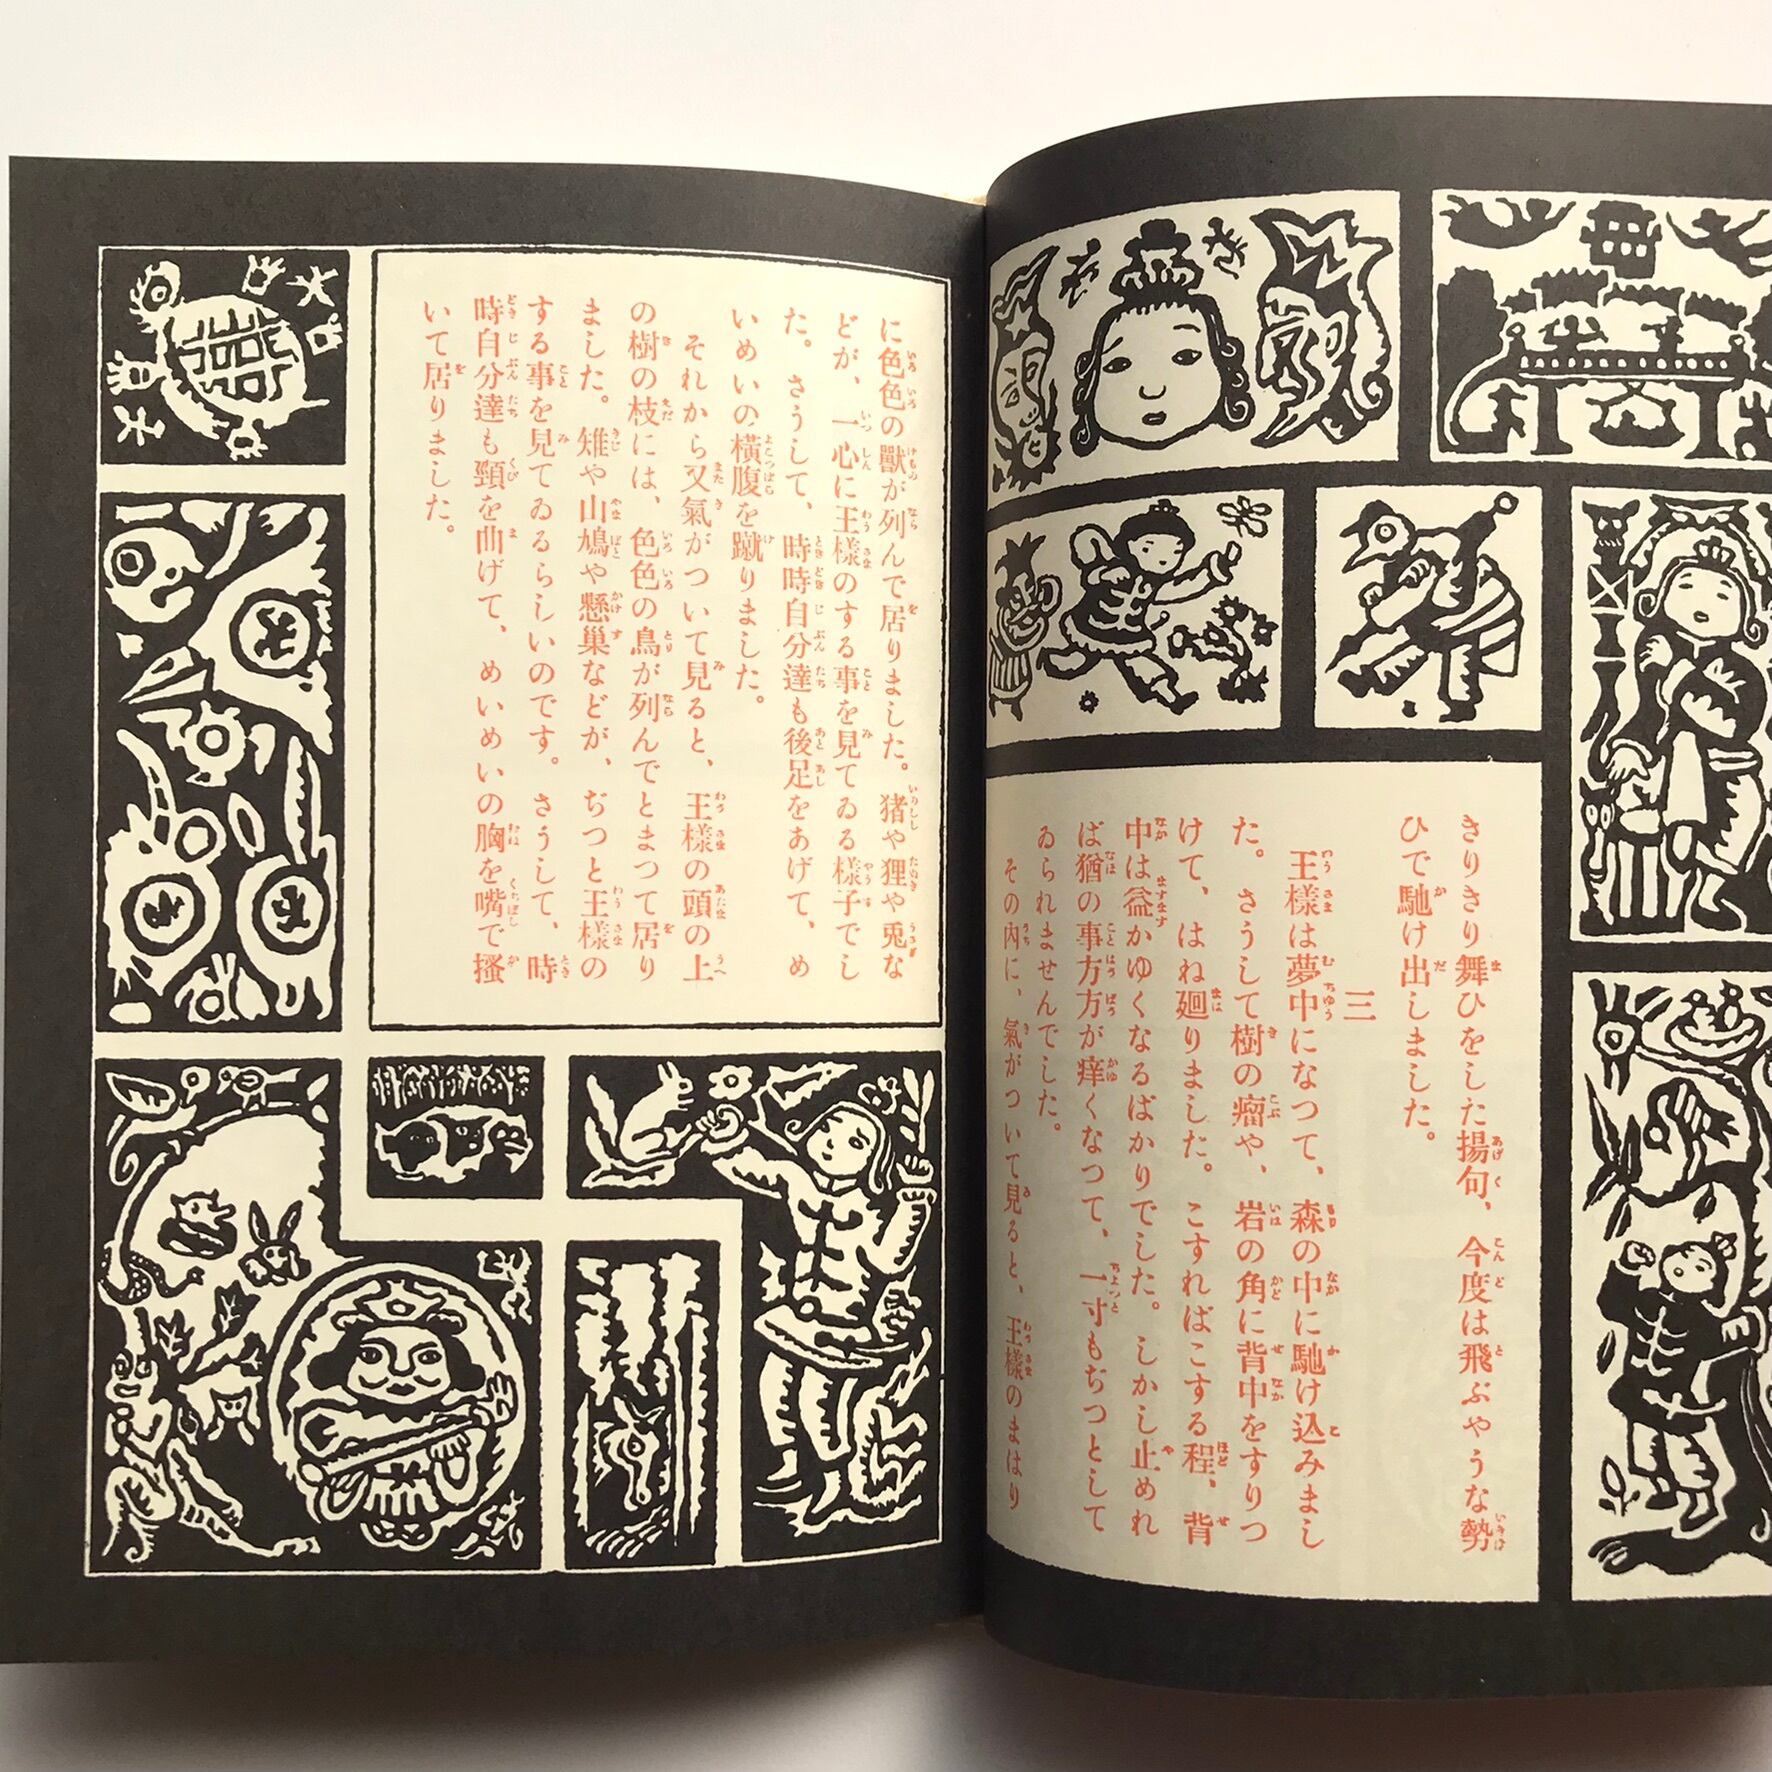 きりきり舞ひをした揚句、今度は飛ぶやうな勢
ひで馳け出しました。
三
王樣は夢中になつて、森の中に馳け込みまし
た。さうして樹の瘤や、岩の角に背中をすりつ
けて、はね廻りました。こすればこする程、背
中は益かゆくなるばかりでした。しかし止めれ
ば猶の事方方が痒くなつて、一寸もぢつとして
ゐられませんでした。
その内に、氣がついて見ると、王樣のまはり
に色色の獸が列んで居りました。猪や狸や兎な
どが、一心に王樣のする事を見てゐる樣子でし
た。さうして、時時自分達も後足をあげて、め
いめいの橫腹を蹴りました。
それから又氣がついて見ると、王樣の頭の上
の樹の枝には、色色の鳥が列んでとまつて居り
ました。雉や山鳩や懸巢などが、ぢつと王樣の
する事を見てゐるらしいのです。さうして、時
時自分達も頸を曲げて、めいめいの胸を嘴で搔
いて居りました。